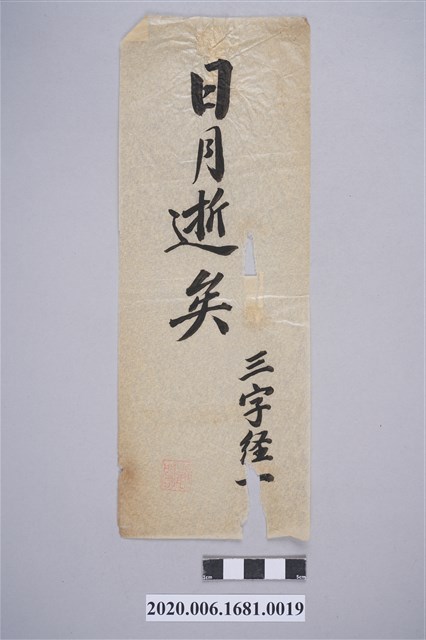 日月逝矣
三字経一
5cm 5cm
2020.006.1681.0019